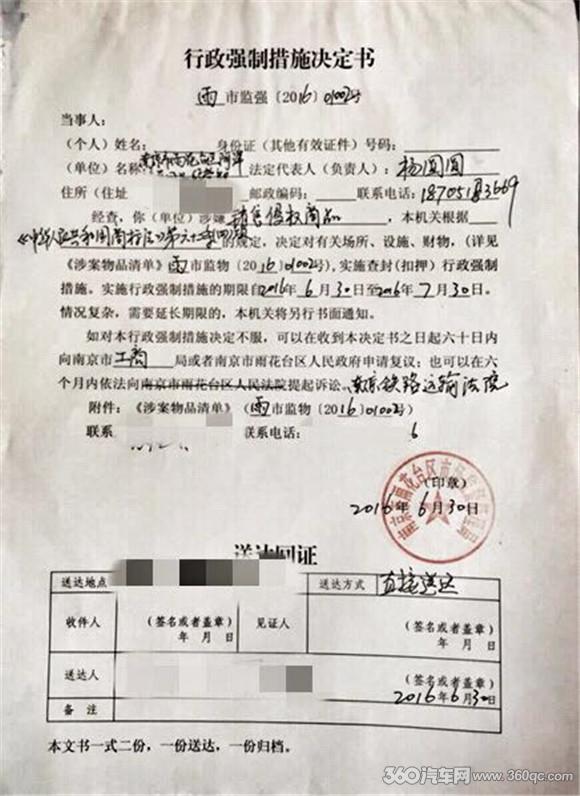 行政强制措施决定书
雨市监强〔2016〕01002号
当事人：
（个人）姓名：身份证（其他有效证件）号码：
（单位）名称 南京市雨花台区 法定代表人（负责人）：杨圆圆
住所（住址 邮政编码： 联系电话：
经查，你（单位）涉嫌销售侵权商品，本机关根据
《中华人民共和国商标法》第六十二条的规定，决定对有关场所、设施、财物，（详见
《涉案物品清单》雨市监物〔2016〕01002号），实施查封（扣押）行政强制
措施。实施行政强制措施的期限自2016年6月30日至2016年7月30日。
情况复杂，需要延长期限的，本机关将另行书面通知。
如对本行政强制措施决定不服，可以在收到本决定书之日起六十日内
向南京市工商局或者南京市雨花台区人民政府申请复议；也可以在六
个月内依法向南京市雨花台区人民法院提起诉讼。南京铁路运输法院
附件：《涉案物品清单》（雨市监物〔2016〕01002号）
联系 联系电话： 6
（印章）
2016年6月30日
送达回证
送达地点 送达方式 直接送达
收件人 （签名或者盖章） 见证人 （签名或者盖章）
年 月 日 年 月 日
送达人 （签名或者盖章）
2016年6月30日
备注
本文书一式二份，一份送达，一份归档。
360汽车网 www.360qc.com